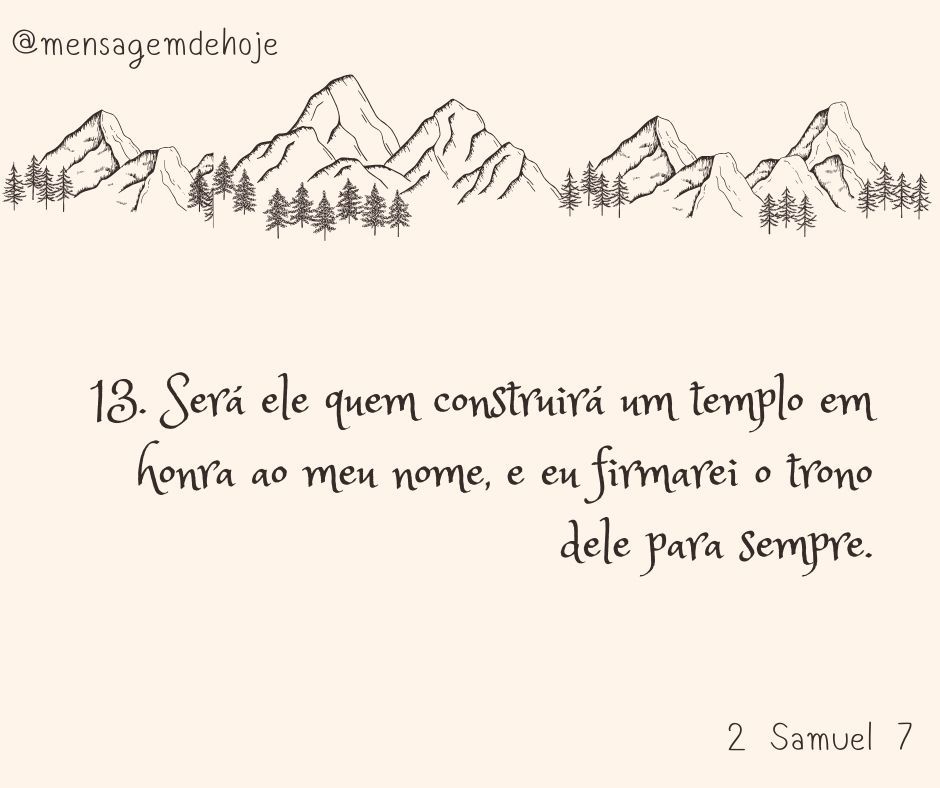 @mensagemdehoje
13. Será ele quem construirá um templo em
honra ao meu nome, e eu firmarei o trono
dele para sempre.
2 Samuel 7